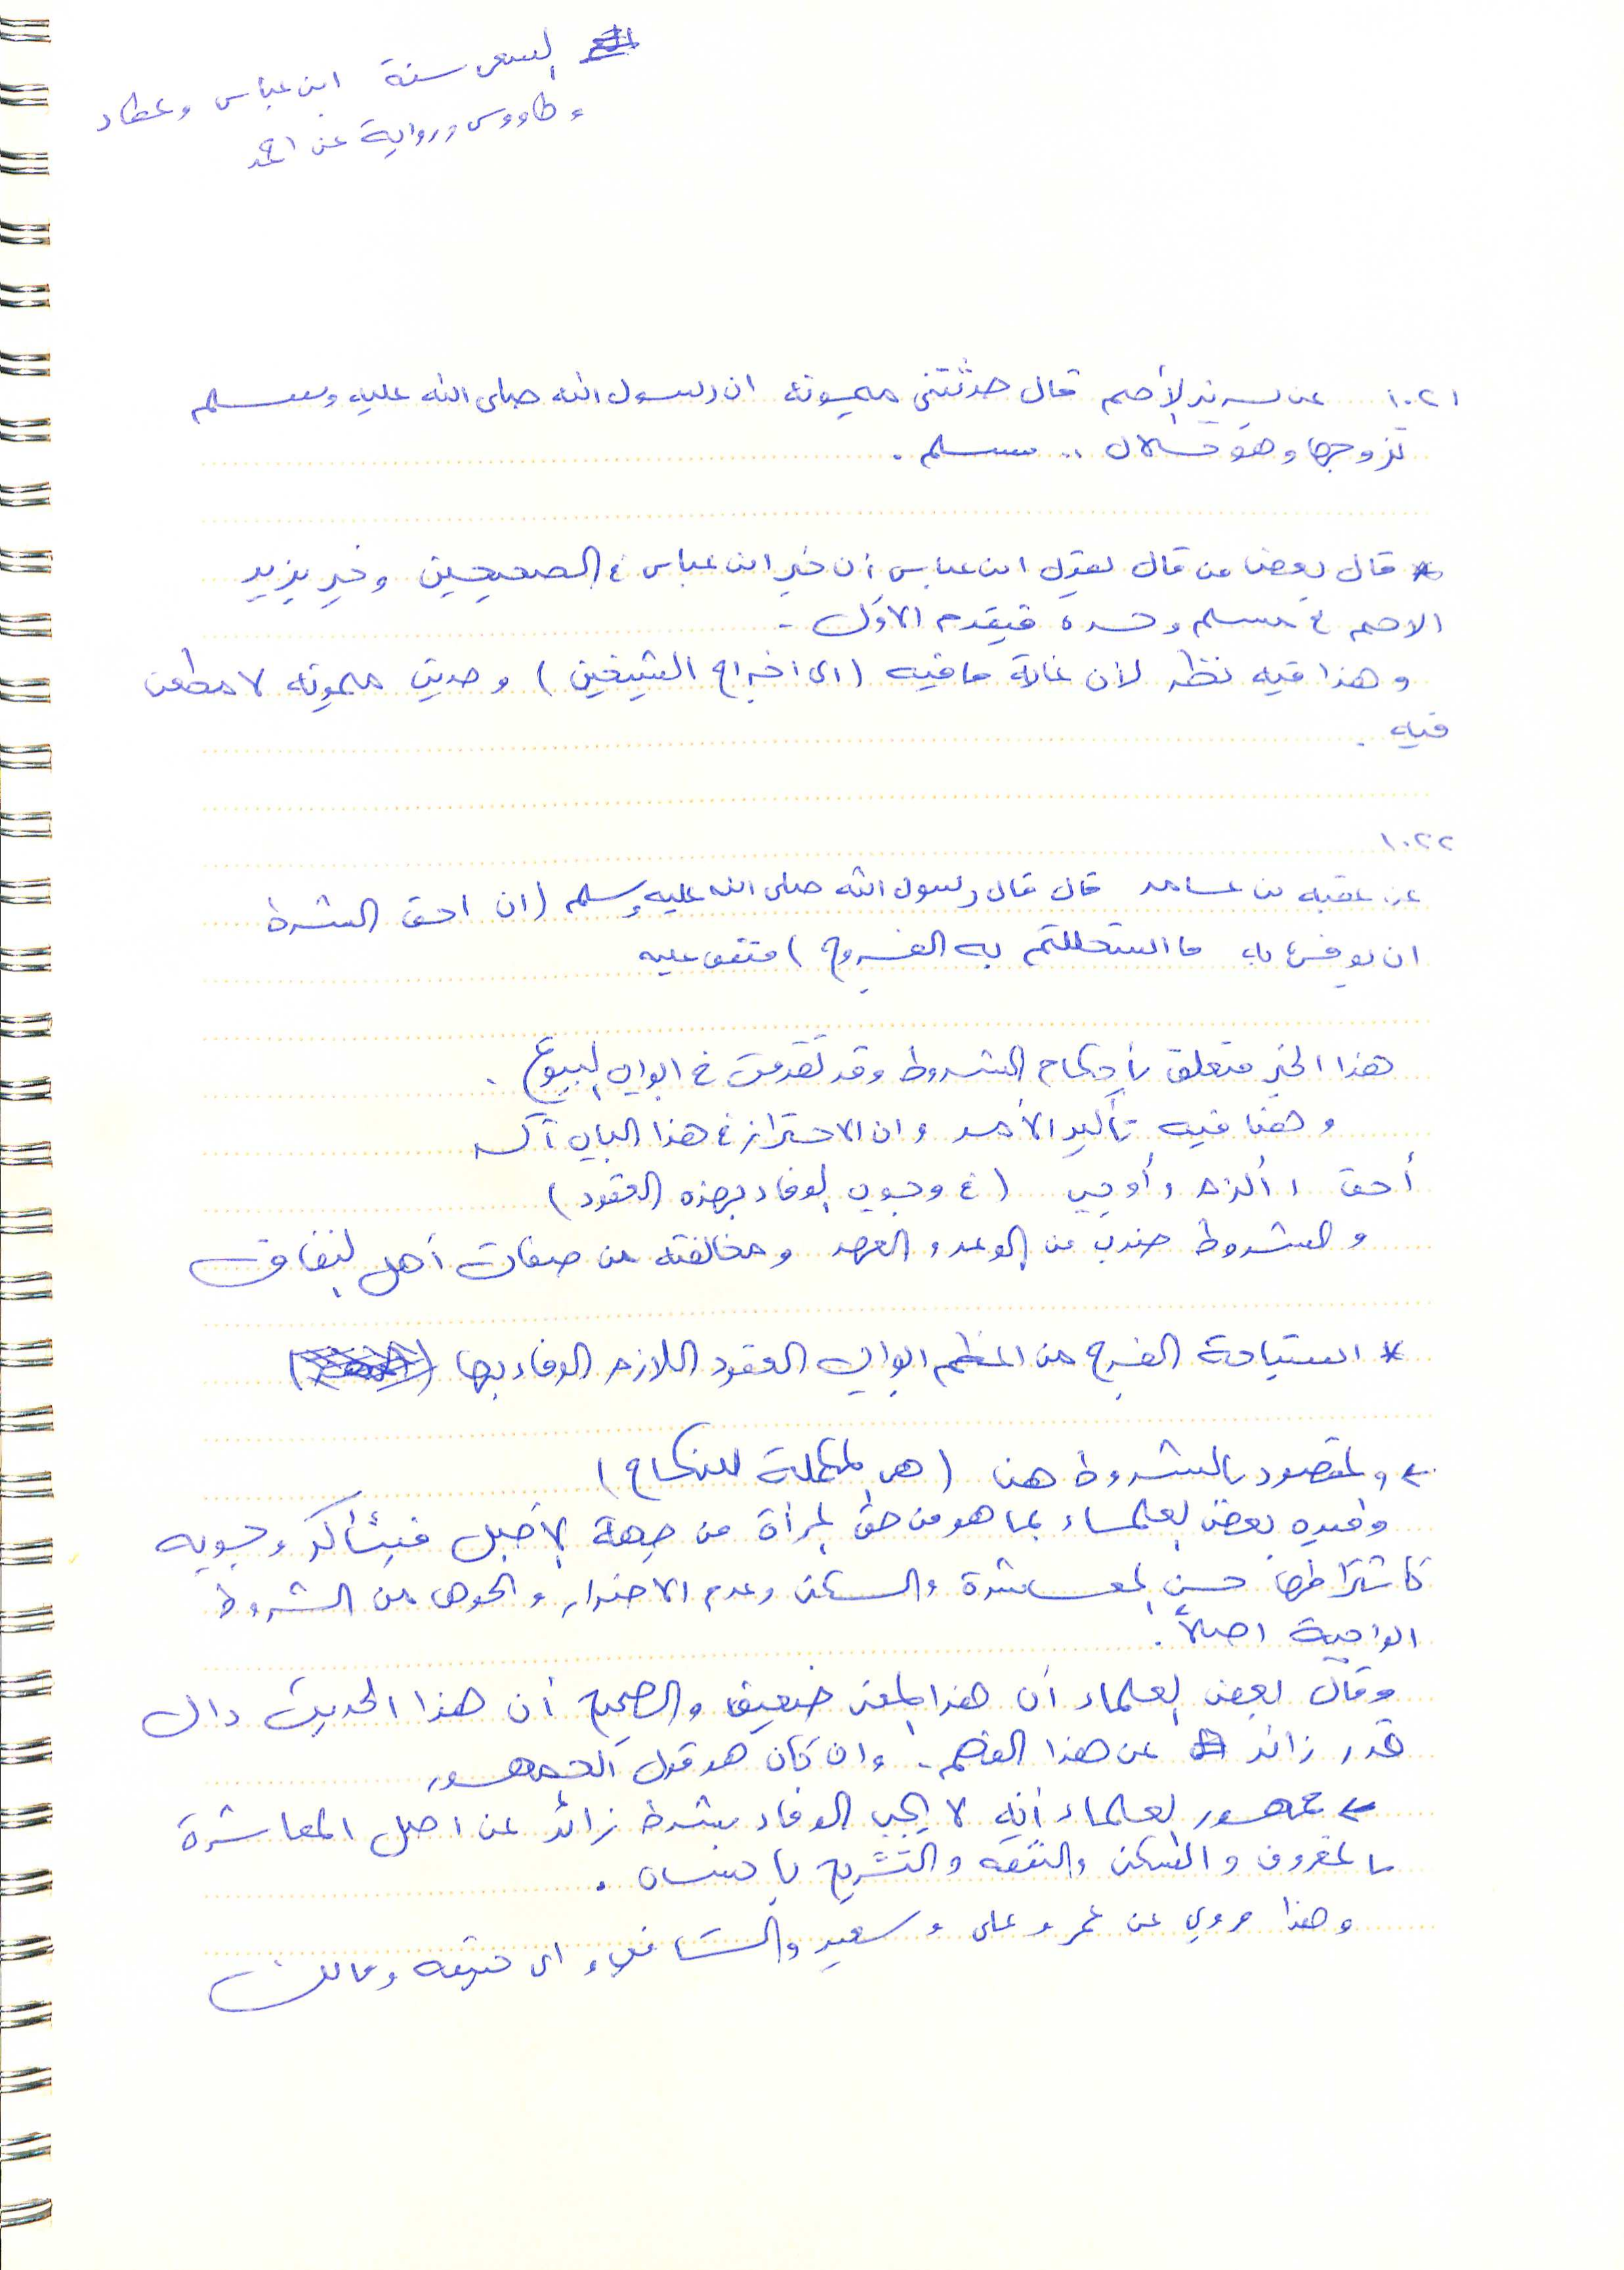 السعي سنة ابن عباس وعطاء
وطاووس ورواية عن احمد
١٠٢١ عن يزيد الأصم قال حدثتني ميمونة ان رسول الله صلى الله عليه وسلم
تزوجها وهو حلال .. مسلم .
* قال بعض من قال بقول ابن عباس أن خبر ابن عباس في الصحيحين وخبر يزيد
الاصم في مسلم وحده فيقدم الأول .
وهذا فيه نظر لأن غاية ما فيه (اي اخراج الشيخين) وحديث ميمونه لا مطعن
فيه .
١٠٢٢
عن عقبه بن عامر قال قال رسول الله صلى الله عليه وسلم (ان احق الشرط
ان يوفى به ما استحللتم به الفروج) متفق عليه
هذا الخبر متعلق بأحكام الشروط وقد تقدمت في ابواب البيوع .
وهنا فيه تأكيد الأمر وان الاحتراز في هذا الباب آكد
أحق ، ألزم ، أوجب (في وجوب الوفاء بهذه العقود)
والشروط ضرب من الوعد والعهد ومخالفته من صفات أهل النفاق
* استباحة الفرج من اعظم ابواب العقود اللازم الوفاء بها
← والمقصود بالشروط هنا (هي المكملة للنكاح)
وقيده بعض العلماء بما هو من حق المرأة من جهة الأصل فيتأكد وجوبه
كاشتراطها حسن المعاشرة والسكن وعدم الاضرار والخوض من الشروط
الواجبة اصلاً .
وقال بعض العلماء أن هذا المعنى ضعيف والصحيح أن هذا الحديث دال
قدر زائد عن هذا الفهم . وان كان هو قول الجمهور
← جمهور العلماء أنه لا يجب الوفاء بشرط زائد عن اصل المعاشرة
بالمعروف والسكن والنفقه والتسريح بإحسان .
وهذا مروي عن عمر وعلي وسعيد والشافعي وابي حنيفه ومالك